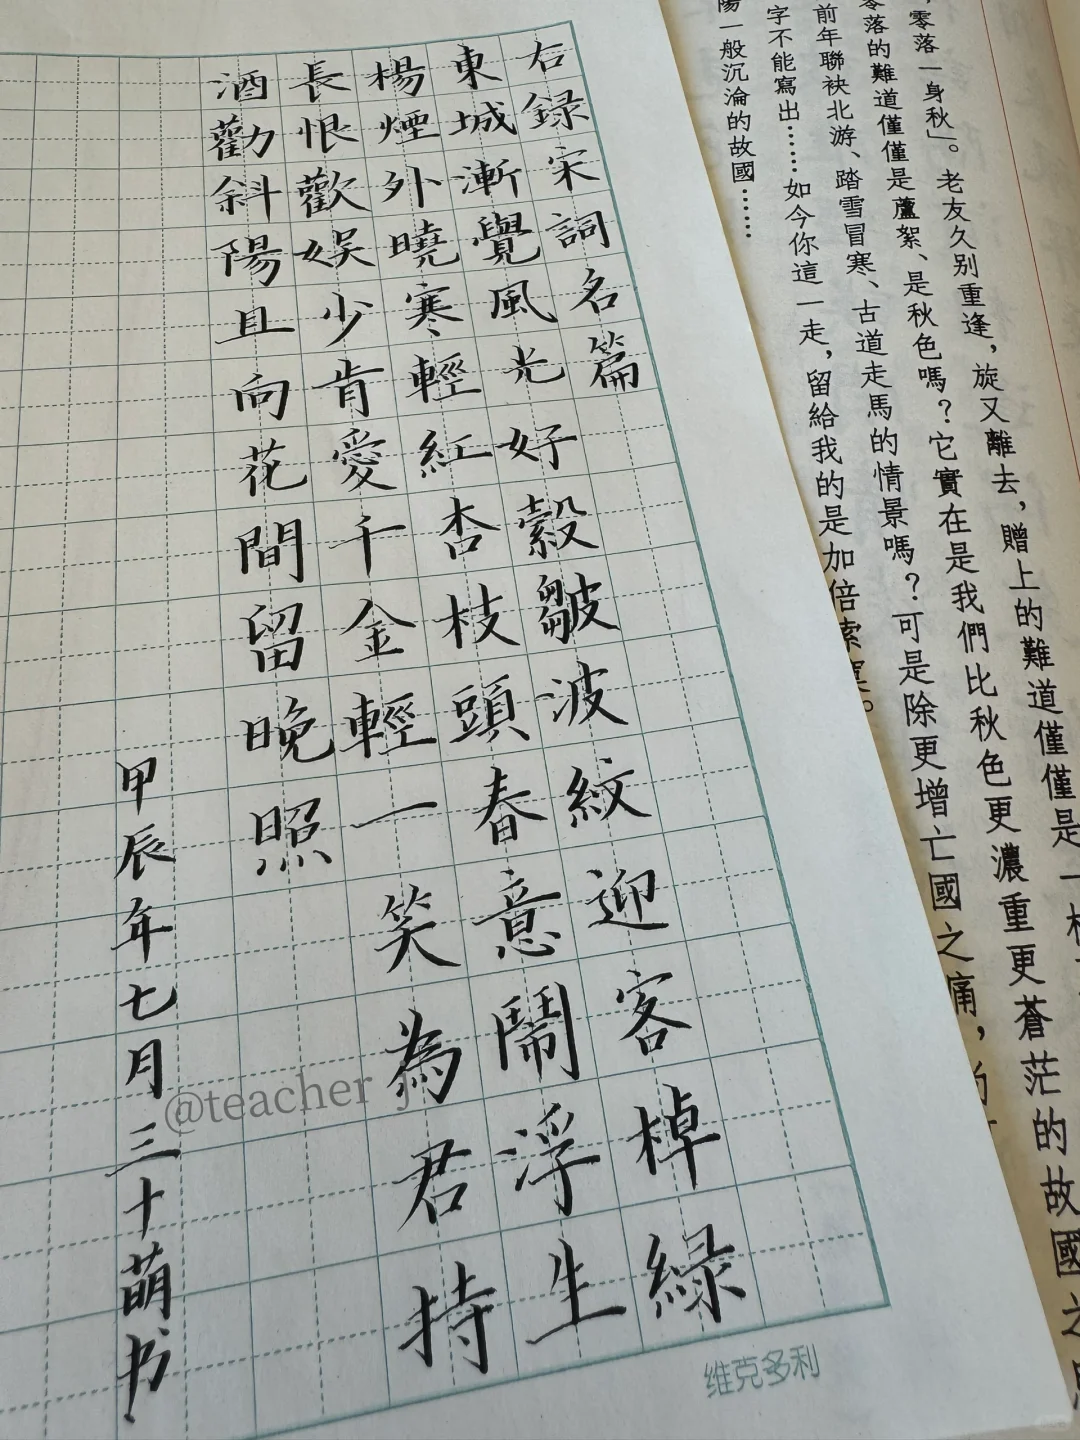 右録宋詞名篇
東城漸覺風光好縠皺波紋迎客棹綠
楊煙外曉寒輕紅杏枝頭春意鬧浮生
長恨歡娛少肯愛千金輕一笑為君持
酒勸斜陽且向花間留晚照
甲辰年七月三十萌书
@teacher j
维克多利
零落一身秋」。老友久别重逢，旋又離去，贈上的難道僅僅是一
零落的難道僅僅是蘆絮、是秋色嗎？它實在是我們比秋色更濃重更蒼茫的故國之
前年聯袂北游、踏雪冒寒、古道走馬的情景嗎？可是除更增亡國之痛，
字不能寫出……如今你這一走，留給我的是加倍索寞。
陽一般沉淪的故國……